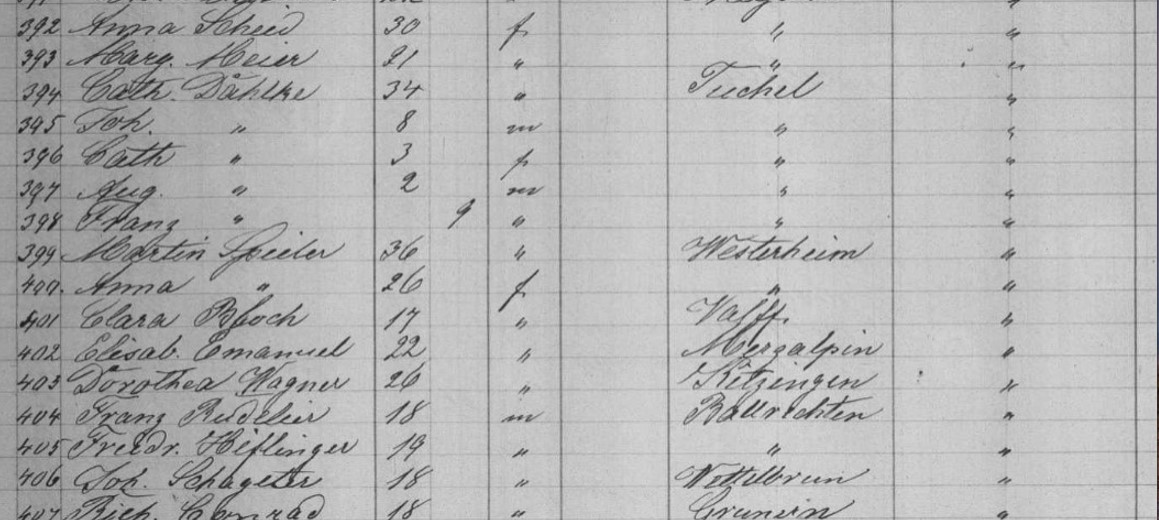 392 Anna Scheid 30 f " "
393 Marg. Meier 21 " " "
394 Cath. Dahlke 34 " Tuchel "
395 Joh. " 8 m " "
396 Cath " 3 f " "
397 Aug. " 2 m " "
398 Franz " 9 " " "
399 Martin Speiler 36 " Westerheim "
400. Anna " 26 f " "
401 Clara Bloch 17 " Valff. "
402 Elisab. Emanuel 22 " Mergalpin "
403 Dorothea Wagner 26 " Kitzingen "
404 Franz 18 m Ballrichten "
405 Friedr. Heflinger 19 " " "
406 Joh. Schageter 18 " Wettelbrun "
407 Rich. Conrad 18 " Grunern "